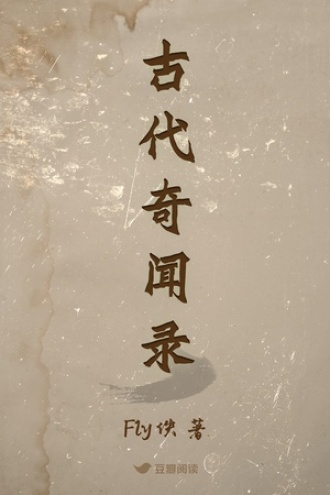 古代奇闻录
Fly侠 著
豆瓣阅读